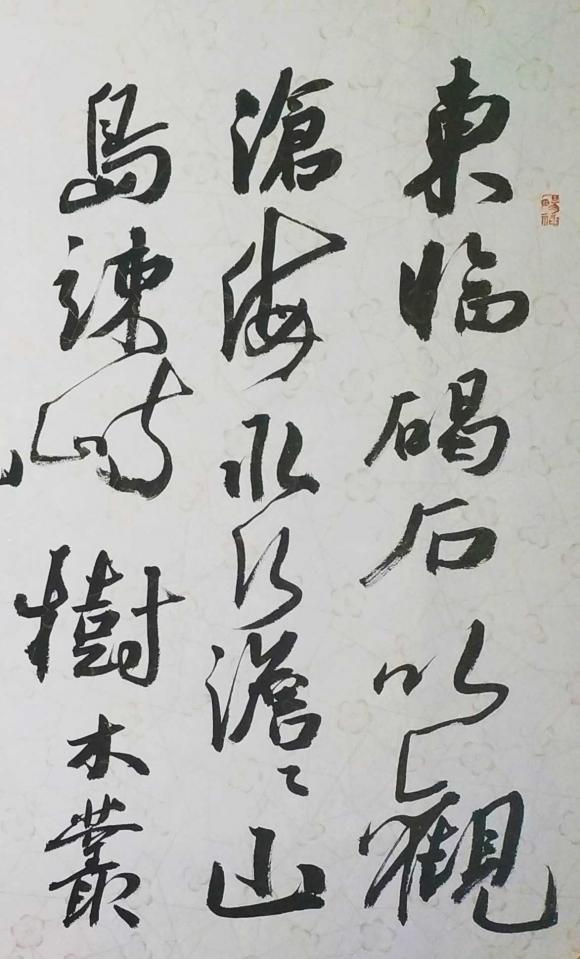 東臨碣石以觀
滄海水何澹〻山
島竦峙樹木叢